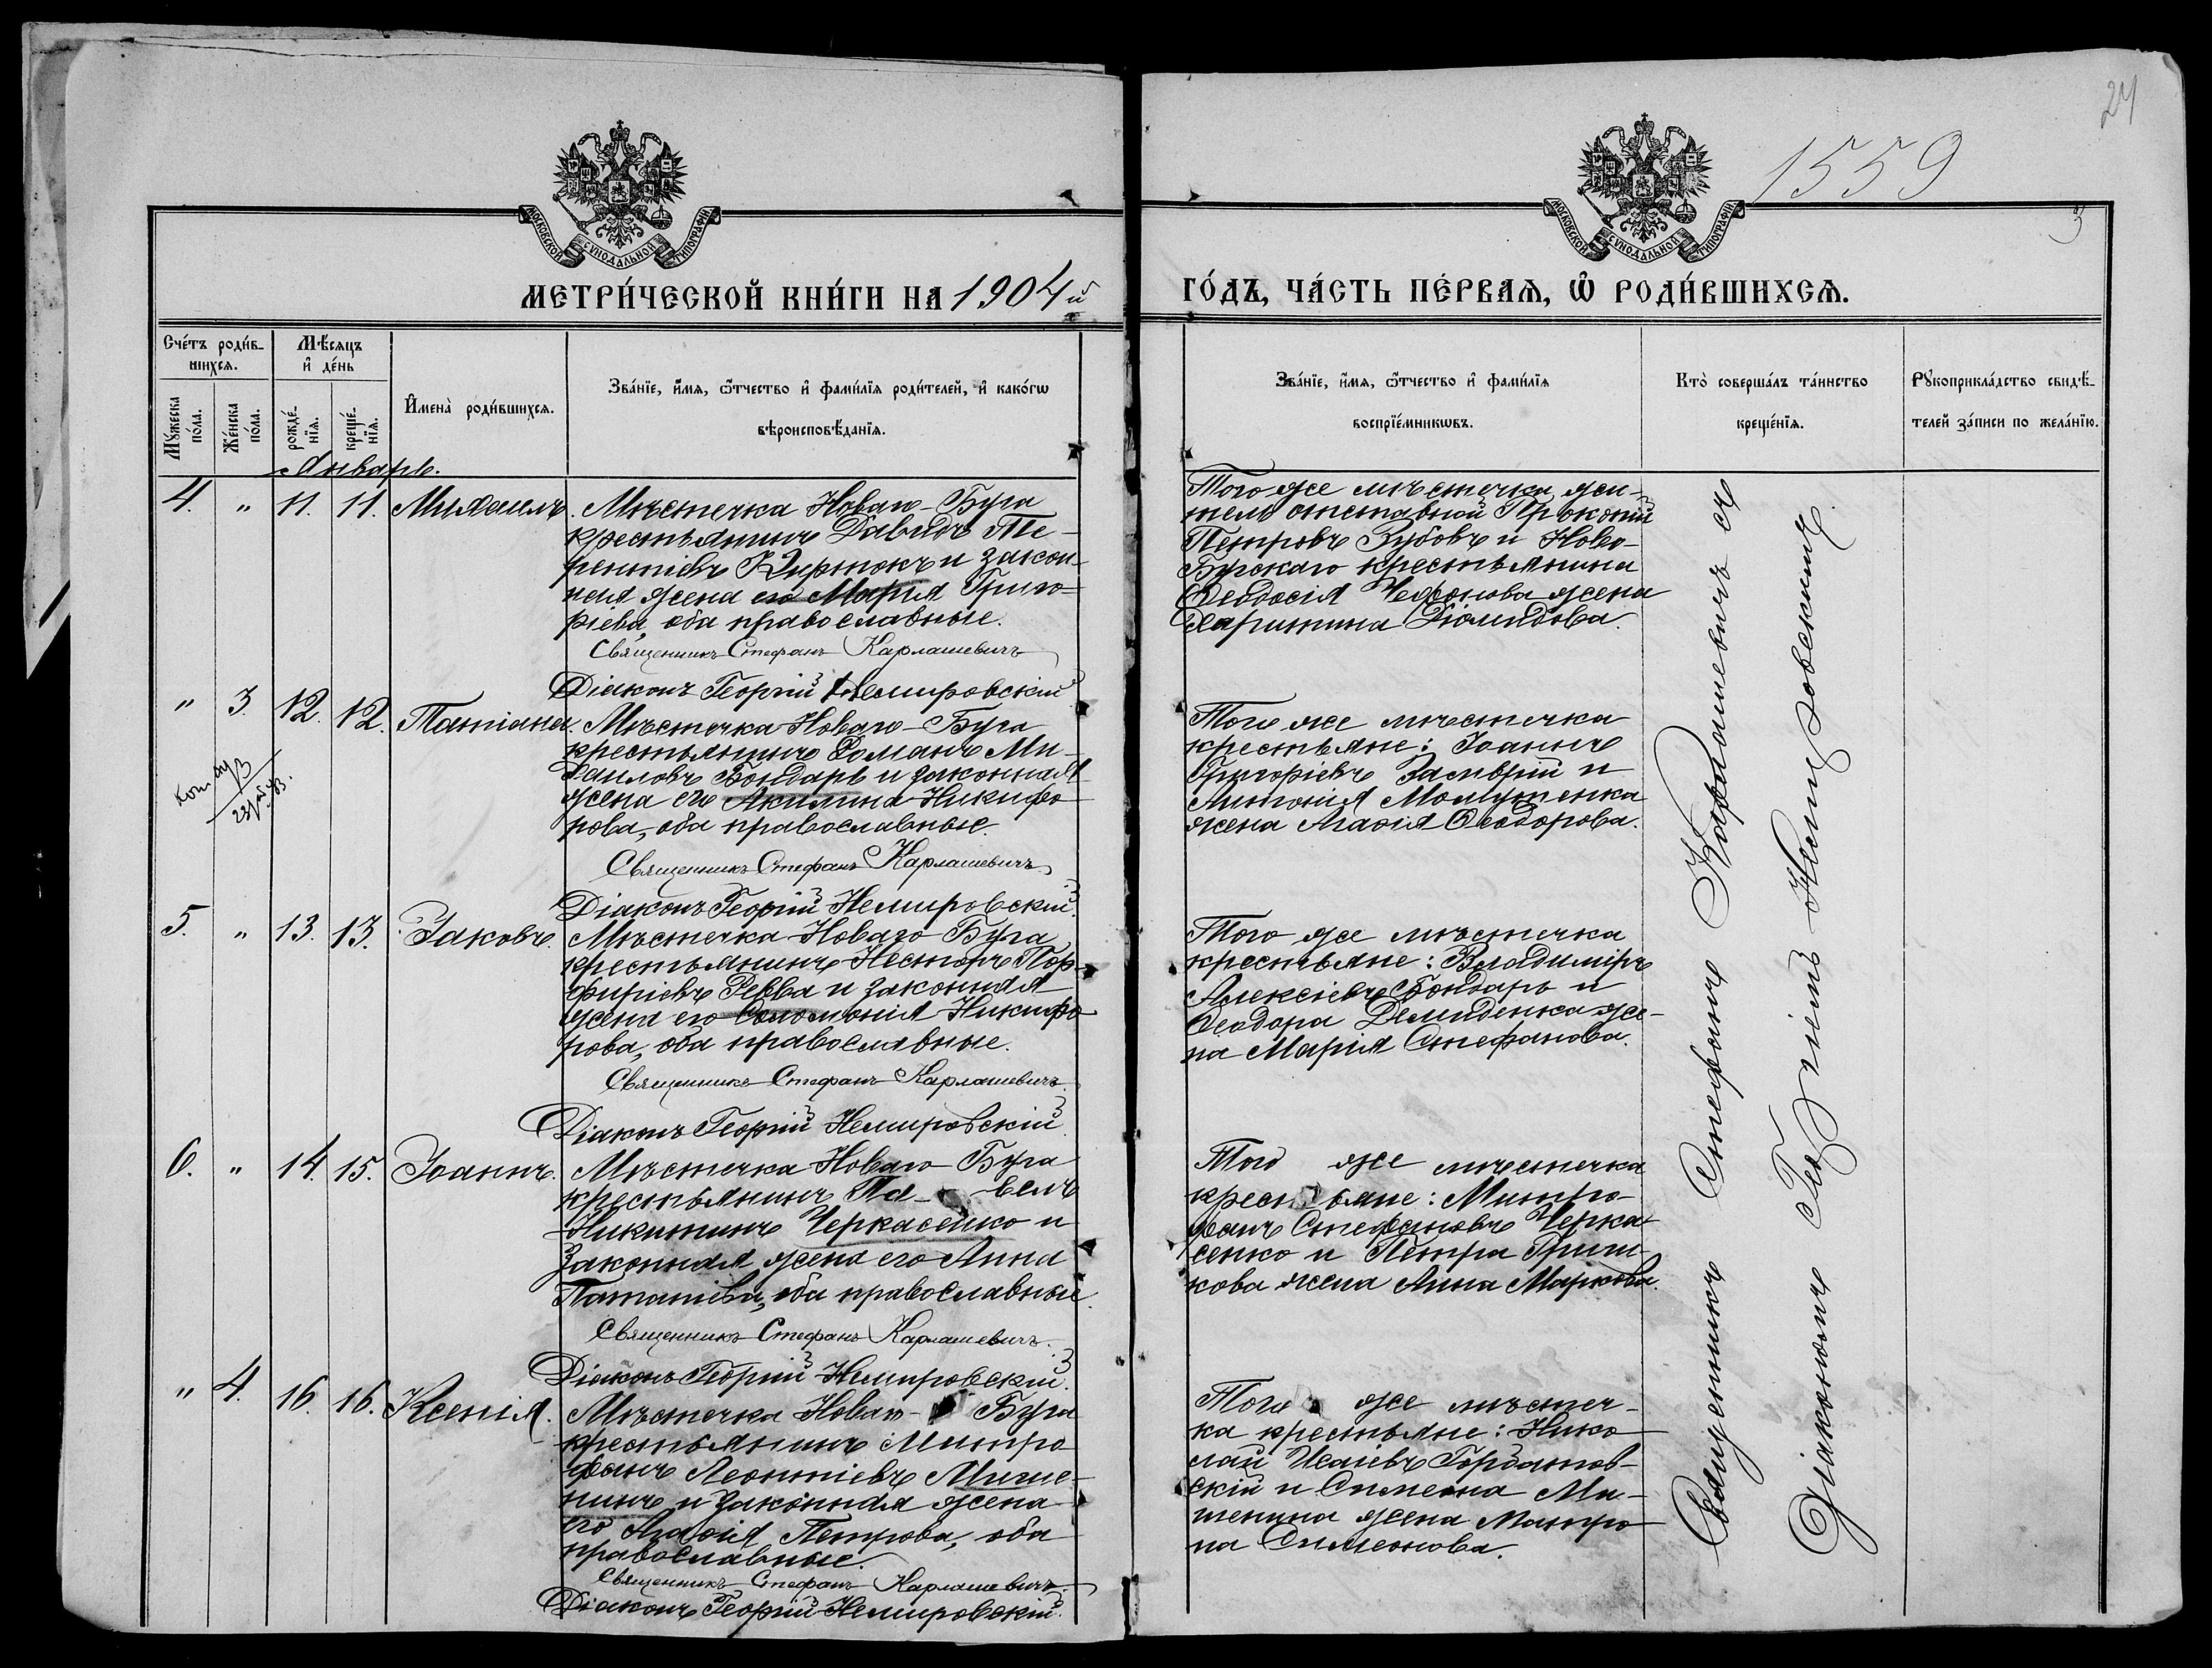 24
1559
3
МОСКОВСКОЙ СУНОДАЛЬНОЙ ТИПОГРАФІИ
МОСКОВСКОЙ СУНОДАЛЬНОЙ ТИПОГРАФІИ
МЕТРИ́ЧЕСКОЙ КНИ́ГИ НА 1904й
ГО́ДЪ, ЧА́СТЬ ПЕ́РВАѦ, Ѽ РОДИ́ВШИХСѦ.
Сче́тъ роди́в-
шихсѧ.
Мꙋ́жеска
по́ла.
Же́нска
по́ла.
Мѣ́сѧцъ
и҆ де́нь
рожде́-
нїѧ.
креще́-
нїѧ.
И҆мена̀ роди́вшихсѧ.
Зва́нїе, и҆́мѧ, ѻ҆́тчество и҆ фами́лїѧ роди́телей, и҆ како́гѡ
вѣроисповѣ́данїѧ.
Зва́нїе, и҆́мѧ, ѻ҆́тчество и҆ фами́лїѧ
воспрїе́мникѡвъ.
Кто̀ соверша́лъ та́инство
креще́нїѧ.
Рꙋкоприкла́дство свидѣ́-
телей за́писи по жела́нїю.
Январь.
4. " 11. 11. Михаилъ.
Мѣстечка Новаго-Буга
крестьянинъ Давидъ Те-
рентіевъ Кирток и закон-
ная жена его Марія Григо-
рьева, оба православные.
Священникъ Стефанъ Карлашевичъ
Діаконъ Георгій Немировскій
Того же мѣстечка жи-
тель отставной Прокопій
Петровъ Зубовъ и Ново-
Бугскаго крестьянина
Ѳеодосія жена
Харитина Діомидова.
" 3. 12. 12. Татіана.
Мѣстечка Новаго-Буга
крестьянинъ Романъ Ми-
хаиловъ Бондарь и законная
жена его Акилина Никифо-
рова, оба православные.
Священникъ Стефанъ Карлашевичъ
Діаконъ Георгій Немировскій.
Того же мѣстечка
крестьяне: Іоаннъ
Григоріевъ и
Антонія
жена Агаѳія Ѳеодорова.
5. " 13. 13. Іаковъ.
Мѣстечка Новаго Буга
крестьянинъ Несторъ Пор-
фиріевъ Рева и законная
жена его Соломонія Никифо-
рова, оба православные.
Священникъ Стефанъ Карлашевичъ.
Діаконъ Георгій Немировскій.
Того же мѣстечка
крестьяне: Владиміръ
Алексіевъ Бондарь и
Ѳеодора Демиденка же-
на Марія Стефанова.
6. " 14. 15. Іоаннъ.
Мѣстечка Новаго Буга
крестьянинъ Па- велъ
Никитинъ Черкасенко и
законная жена его Анна
Потапіева, оба православные.
Священникъ Стефанъ Карлашевичъ.
Діаконъ Георгій Немировскій.
Того же мѣстечка
крестьяне: Митро-
фанъ Стефановъ Черка-
сенко и Петра Гриш-
кова жена Анна Маркова.
" 4. 16. 16. Ксенія.
Мѣстечка Новаго- Буга
крестьянинъ Митро
фанъ Леонтіевъ Мише-
нинъ и законная жена
его Агаѳія Петрова, оба
православные.
Священникъ Стефанъ Карлашевичъ.
Діаконъ Георгій Немировскій.
Того же мѣстеч-
ка крестьяне: Нико
лай Исаіевъ Горбатов-
скій и Симеона Ми-
шенина жена Матро
на Симеонова.
Священникъ Стефанъ Карлашевичъ съ
Діакономъ Георгіемъ Немировскимъ.